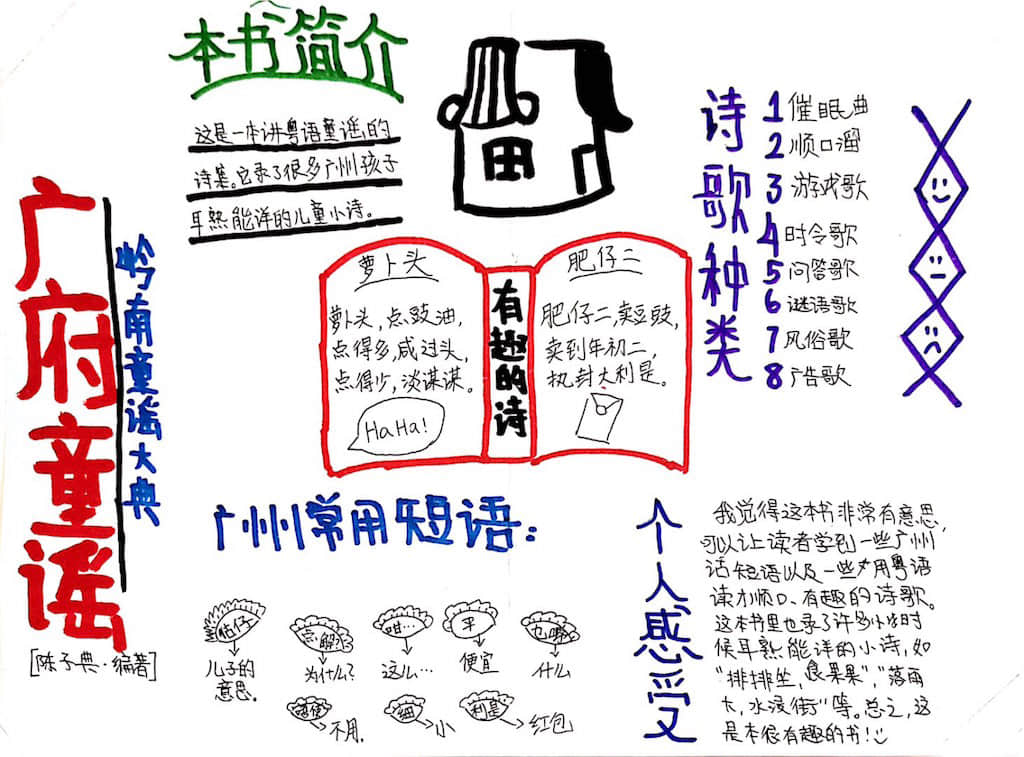 本书简介
这是一本讲粤语童谣的
诗集。它录了很多广州孩子
耳熟能详的儿童小诗。
广府童谣
岭南童谣大典
[陈子典·编著]
萝卜头
萝卜头,点豉油,
点得多,咸过头,
点得少,淡谋谋。
HaHa!
有趣的诗
肥仔二
肥仔二,卖豆豉,
卖到年初二,
执封大利是。
诗歌种类
1 催眠曲
2 顺口溜
3 游戏歌
4 时令歌
5 问答歌
6 谜语歌
7 风俗歌
8 广告歌
广州常用短语:
儿子的
意思.
点解?
为什么?
咁…
这么…
平
便宜
乜嘢
什么
唔使
不用.
细
小
利是
红包
个人感受
我觉得这本书非常有意思,
可以让读者学到一些广州
话短语以及一些用粤语
读才顺口、有趣的诗歌。
这本书里也录了许多小时
候耳熟能详的小诗,如
“排排坐,食果果”,“落雨
大,水浸街”等。总之,这
是本很有趣的书!